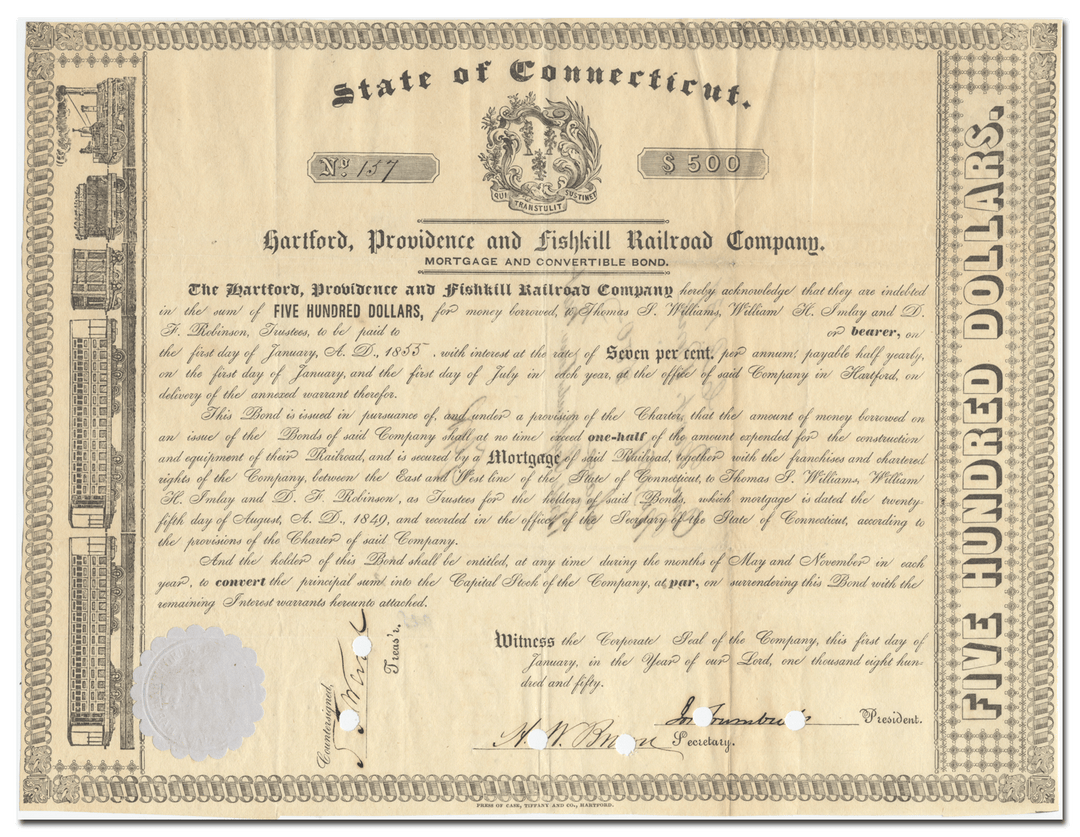 State of Connecticut.
No. 157
$ 500
QUI TRANSTULIT SUSTINET
Hartford, Providence and Fishkill Railroad Company.
MORTGAGE AND CONVERTIBLE BOND.
The Hartford, Providence and Fishkill Railroad Company hereby acknowledge that they are indebted
in the sum of FIVE HUNDRED DOLLARS, for money borrowed, to Thomas S. Williams, William H. Imlay and D.
F. Robinson, Trustees, to be paid to or bearer, on
the first day of January, A. D., 1855, with interest at the rate of Seven per cent. per annum, payable half yearly,
on the first day of January, and the first day of July in each year, at the office of said Company in Hartford, on
delivery of the annexed warrant therefor.
This Bond is issued in pursuance of, and under a provision of the Charter, that the amount of money borrowed on
an issue of the Bonds of said Company shall at no time exceed one-half of the amount expended for the construction
and equipment of their Railroad, and is secured by a Mortgage of said Railroad, together with the franchises and chartered
rights of the Company, between the East and West line of the State of Connecticut, to Thomas S. Williams, William
H. Imlay and D. F. Robinson, as Trustees for the holders of said Bonds, which mortgage is dated the twenty-
fifth day of August, A. D., 1849, and recorded in the office of the Secretary of the State of Connecticut, according to
the provisions of the Charter of said Company.
And the holder of this Bond shall be entitled, at any time during the months of May and November in each
year, to convert the principal sum into the Capital Stock of the Company, at par, on surrendering this Bond with the
remaining Interest warrants hereunto attached.
Witness the Corporate Seal of the Company, this first day of
January, in the Year of our Lord, one thousand eight hun-
dred and fifty.
President.
Secretary.
Countersigned,
Treas'r.
FIVE HUNDRED DOLLARS.
PRESS OF CASE, TIFFANY AND CO., HARTFORD.